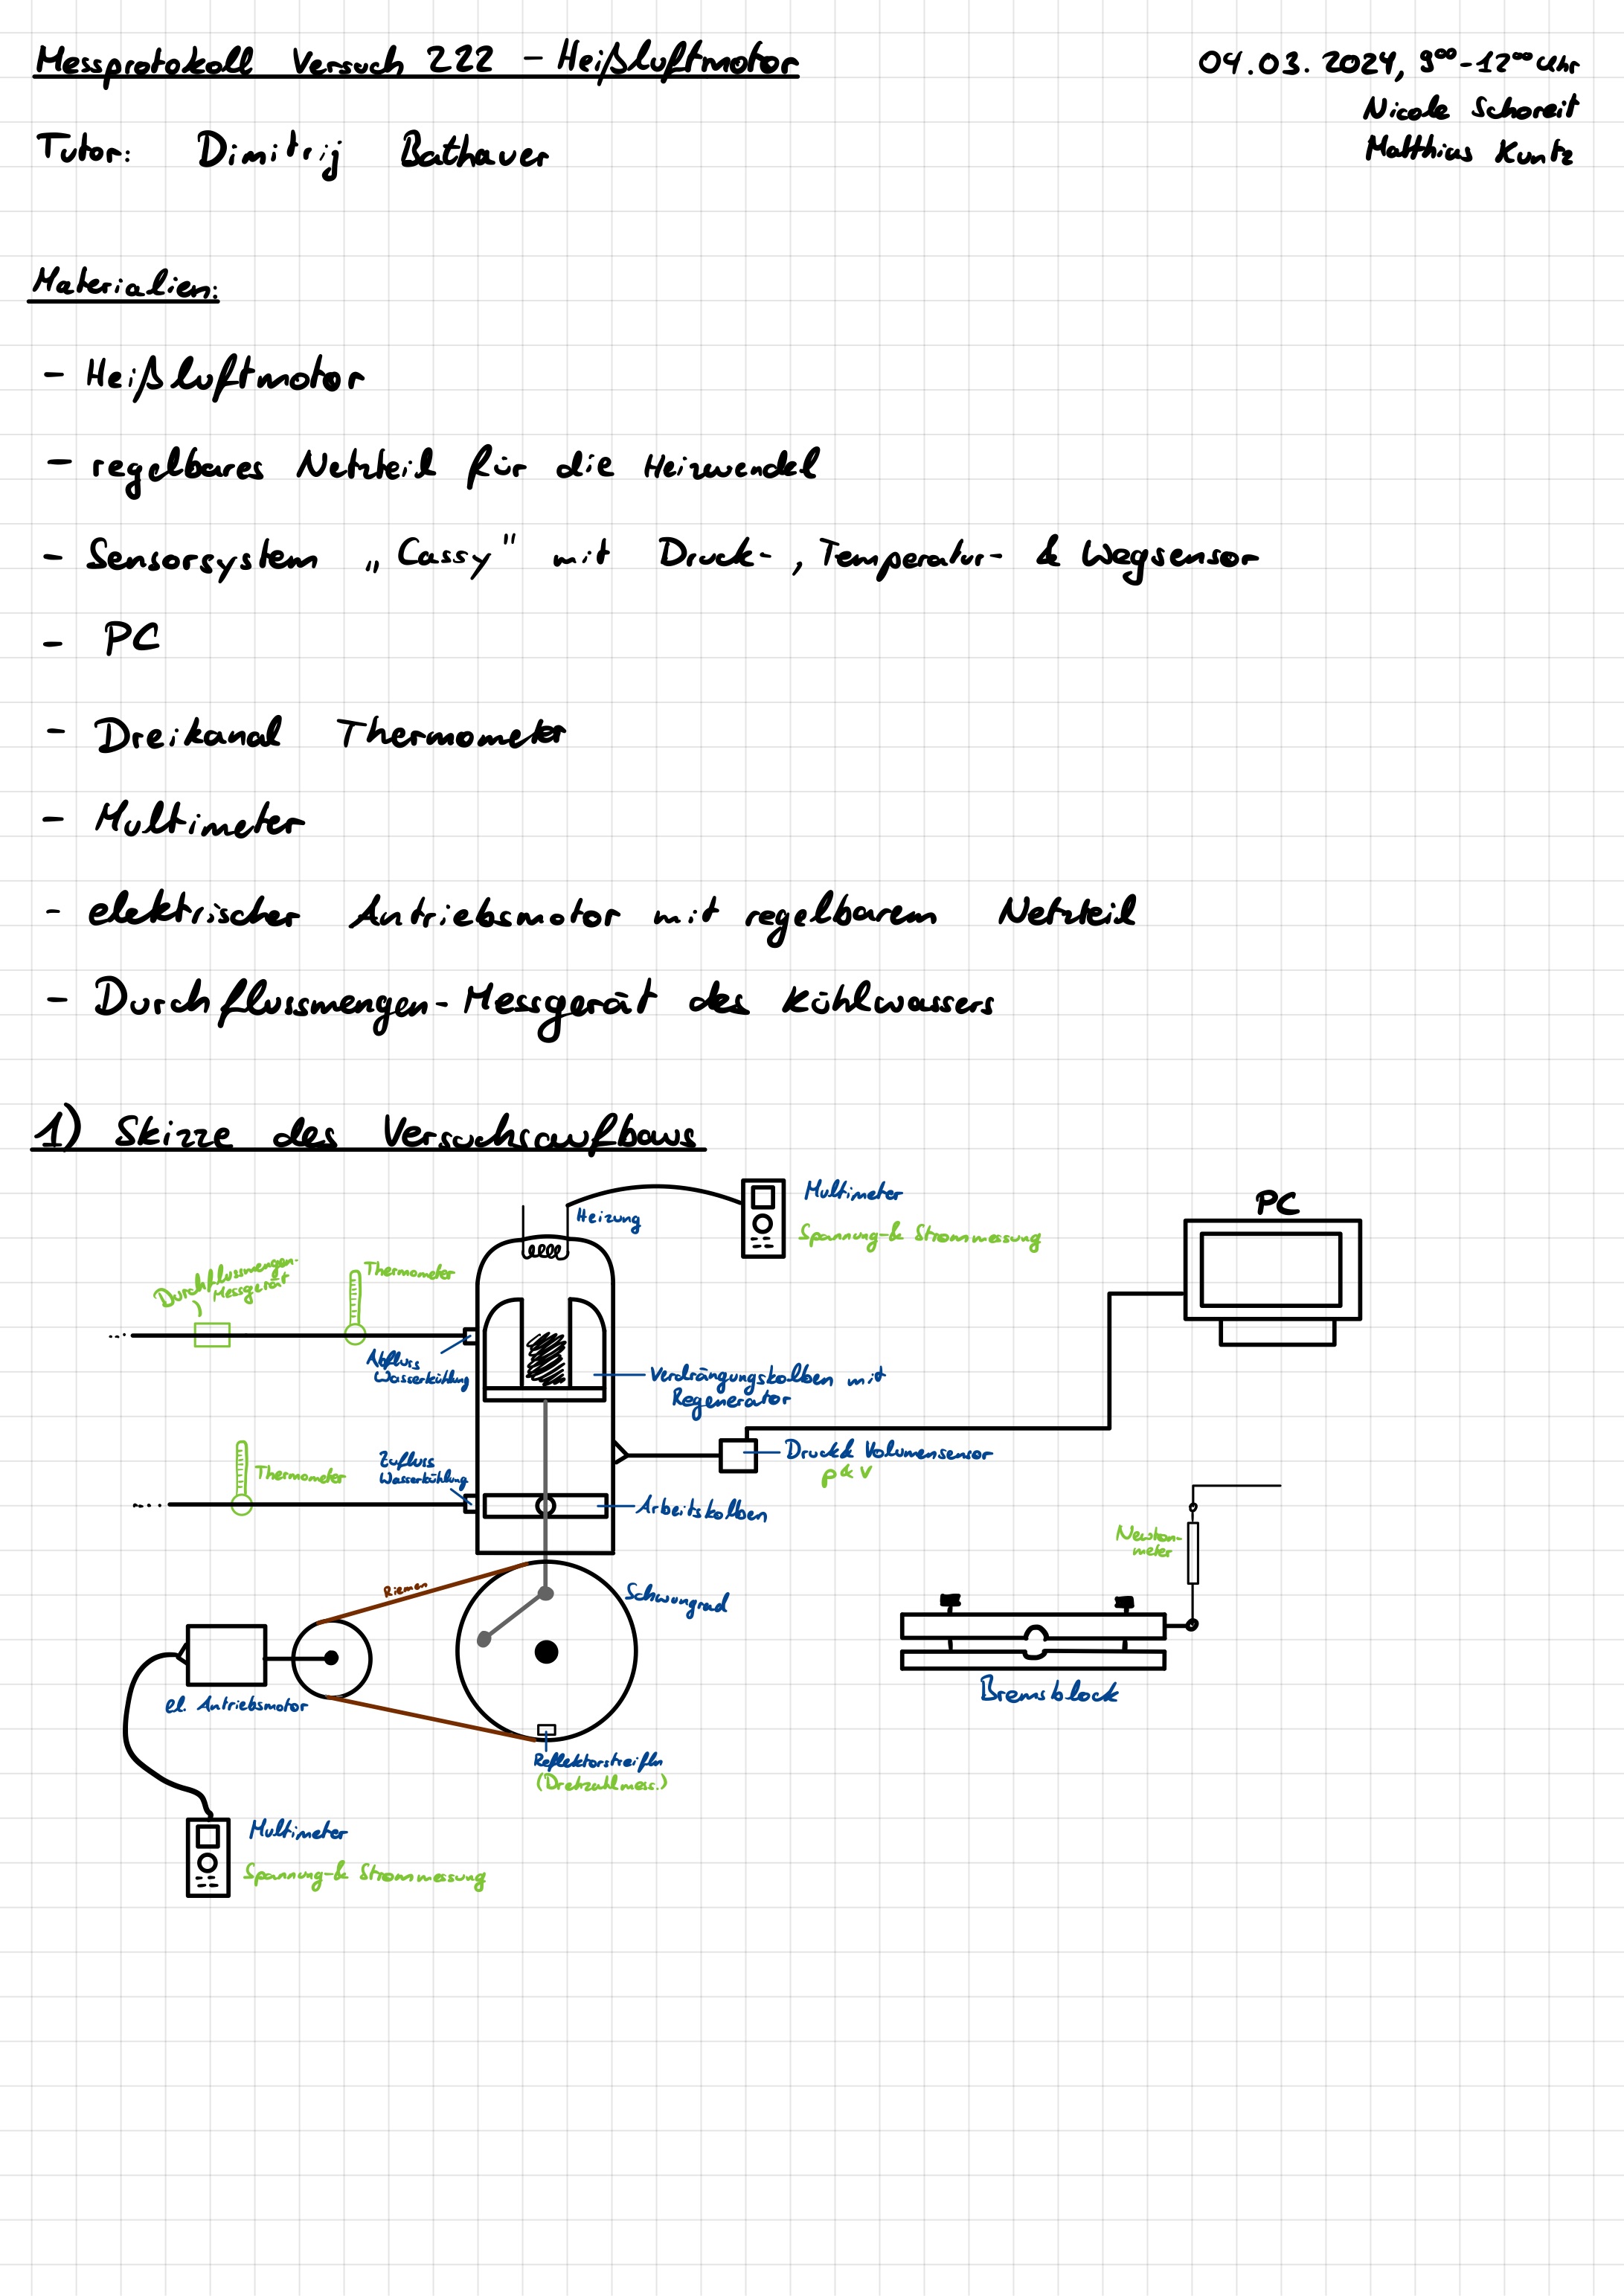 Messprotokoll Versuch 222 - Heißluftmotor
04.03.2024, 9⁰⁰-12⁰⁰ Uhr
Nicole Schoreit
Matthias Kuntz
Tutor: Dimitrij Bathauer
Materialien:
- Heißluftmotor
- regelbares Netzteil für die Heizwendel
- Sensorsystem „Cassy" mit Druck-, Temperatur- & Wegsensor
- PC
- Dreikanal Thermometer
- Multimeter
- elektrischer Antriebsmotor mit regelbarem Netzteil
- Durchflussmengen-Messgerät des Kühlwassers
1) Skizze des Versuchsaufbaus
Multimeter
Spannung-& Strommessung
PC
Heizung
Durchflussmengen-
Messgerät
Thermometer
Abfluss
Wasserkühlung
Verdrängungskolben mit
Regenerator
Zufluss
Wasserkühlung
Thermometer
Druck& Volumensensor
p & V
Arbeitskolben
Newton-
meter
Riemen
Schwungrad
Bremsblock
el. Antriebsmotor
Reflektorstreifen
(Drehzahlmess.)
Multimeter
Spannung-& Strommessung